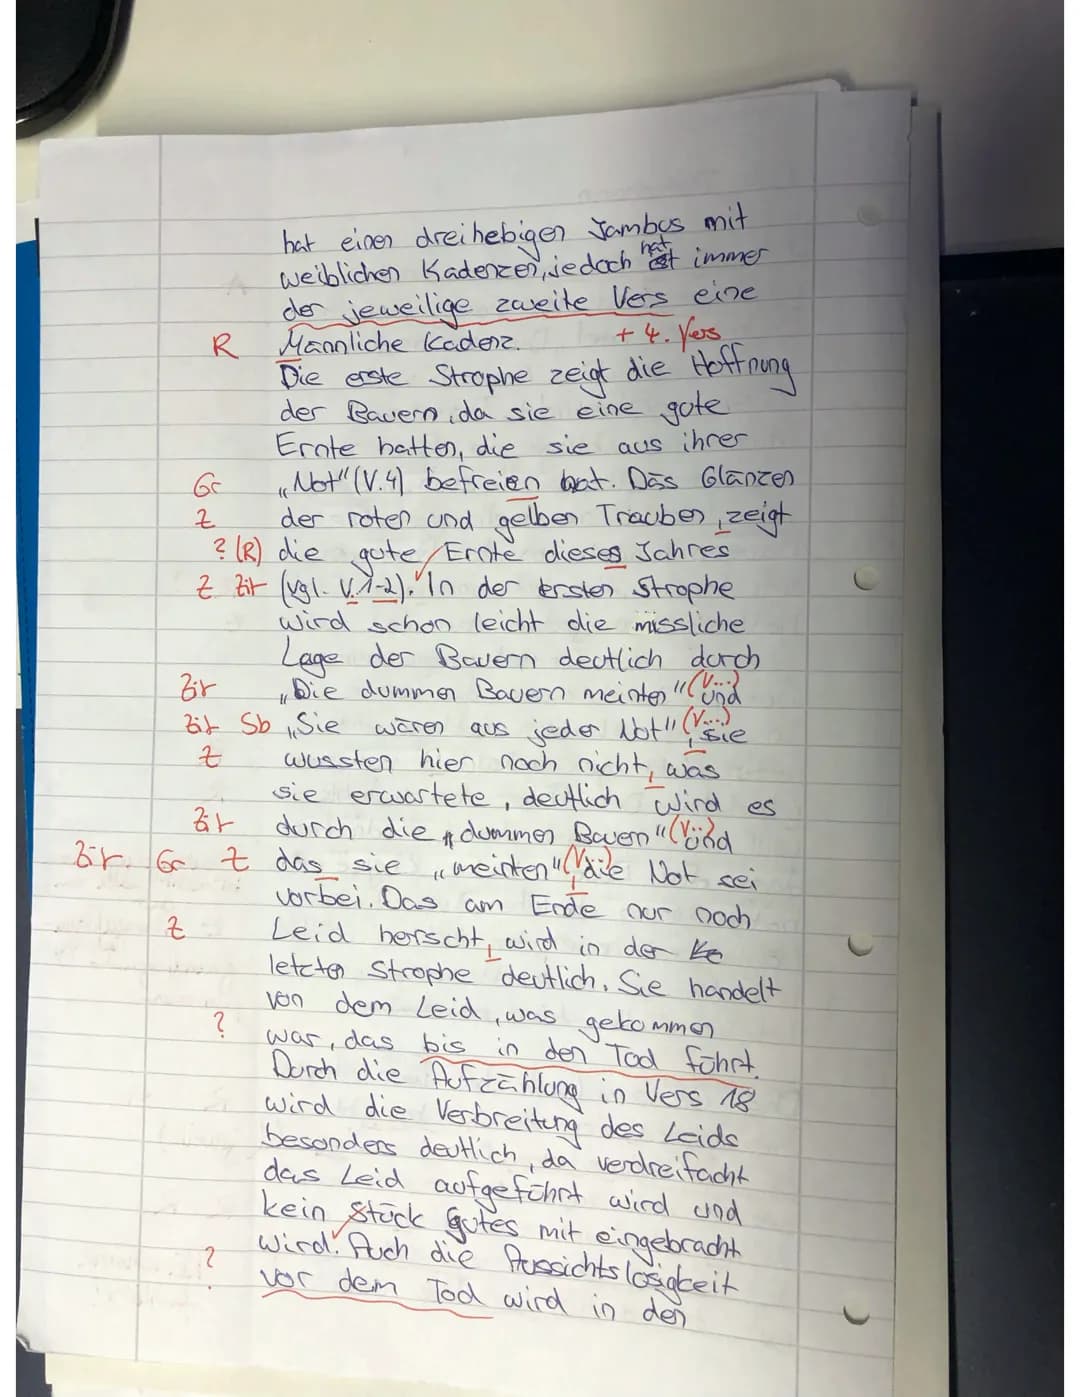 hat einen dreihebigen Jambus mit
weiblichen Kadenzen, jedoch hat immer
der jeweilige zweite Vers eine
R Männliche Kadenz. + 4. Vers
Die erste Strophe zeigt die Hoffnung
der Bauern, da sie eine gute
Ernte hatten, die sie aus ihrer
Gr „Not" (V.4) befreien hat. Das Glänzen
Z der roten und gelben Trauben, zeigt
? (R) die gute Ernte dieses Jahres
Z Zit (vgl. V.1-2). In der ersten Strophe
wird schon leicht die missliche
Lage der Bauern deutlich durch
Zit „Die dummen Bauern meinten" (V...) und
Zit Sb „Sie wären aus jeder Not" (V...), sie
Z wussten hier noch nicht, was
sie erwartete, deutlich wird es
Zit durch die „dummen Bauern" (V...) und
Zit Gr Z das sie „meinten" (V...), die Not sei
vorbei. Das am Ende nur noch
Z Leid herscht, wird in der
letzten Strophe deutlich. Sie handelt
von dem Leid, was gekommen
? war, das bis in den Tod führt.
Durch die Aufzählung in Vers 18
wird die Verbreitung des Leids
besonders deutlich, da verdreifacht
das Leid aufgeführt wird und
kein Stück Gutes mit eingebracht
wird. Auch die Aussichtslosigkeit
? vor dem Tod wird in den